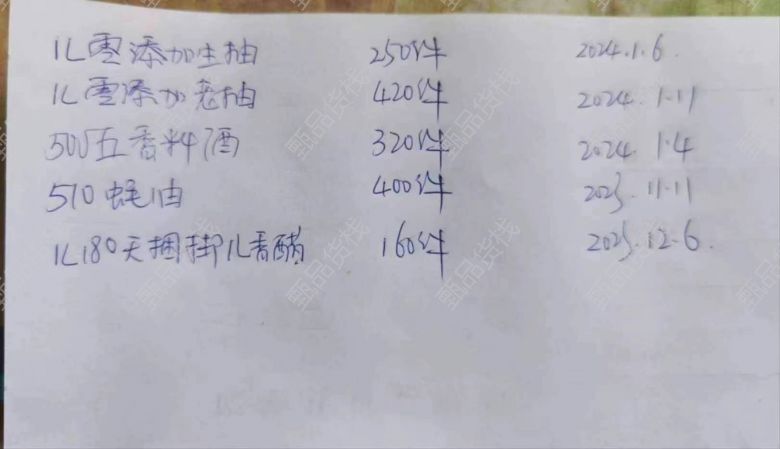 1L零添加生抽 250件 2024.1.6.
1L零添加老抽 420件 2024.1.11
500五香料酒 320件 2024.1.4
510蚝油 400件 2023.11.11
1L180天捆掛1L香醋 160件 2023.12.6.
甄品货栈